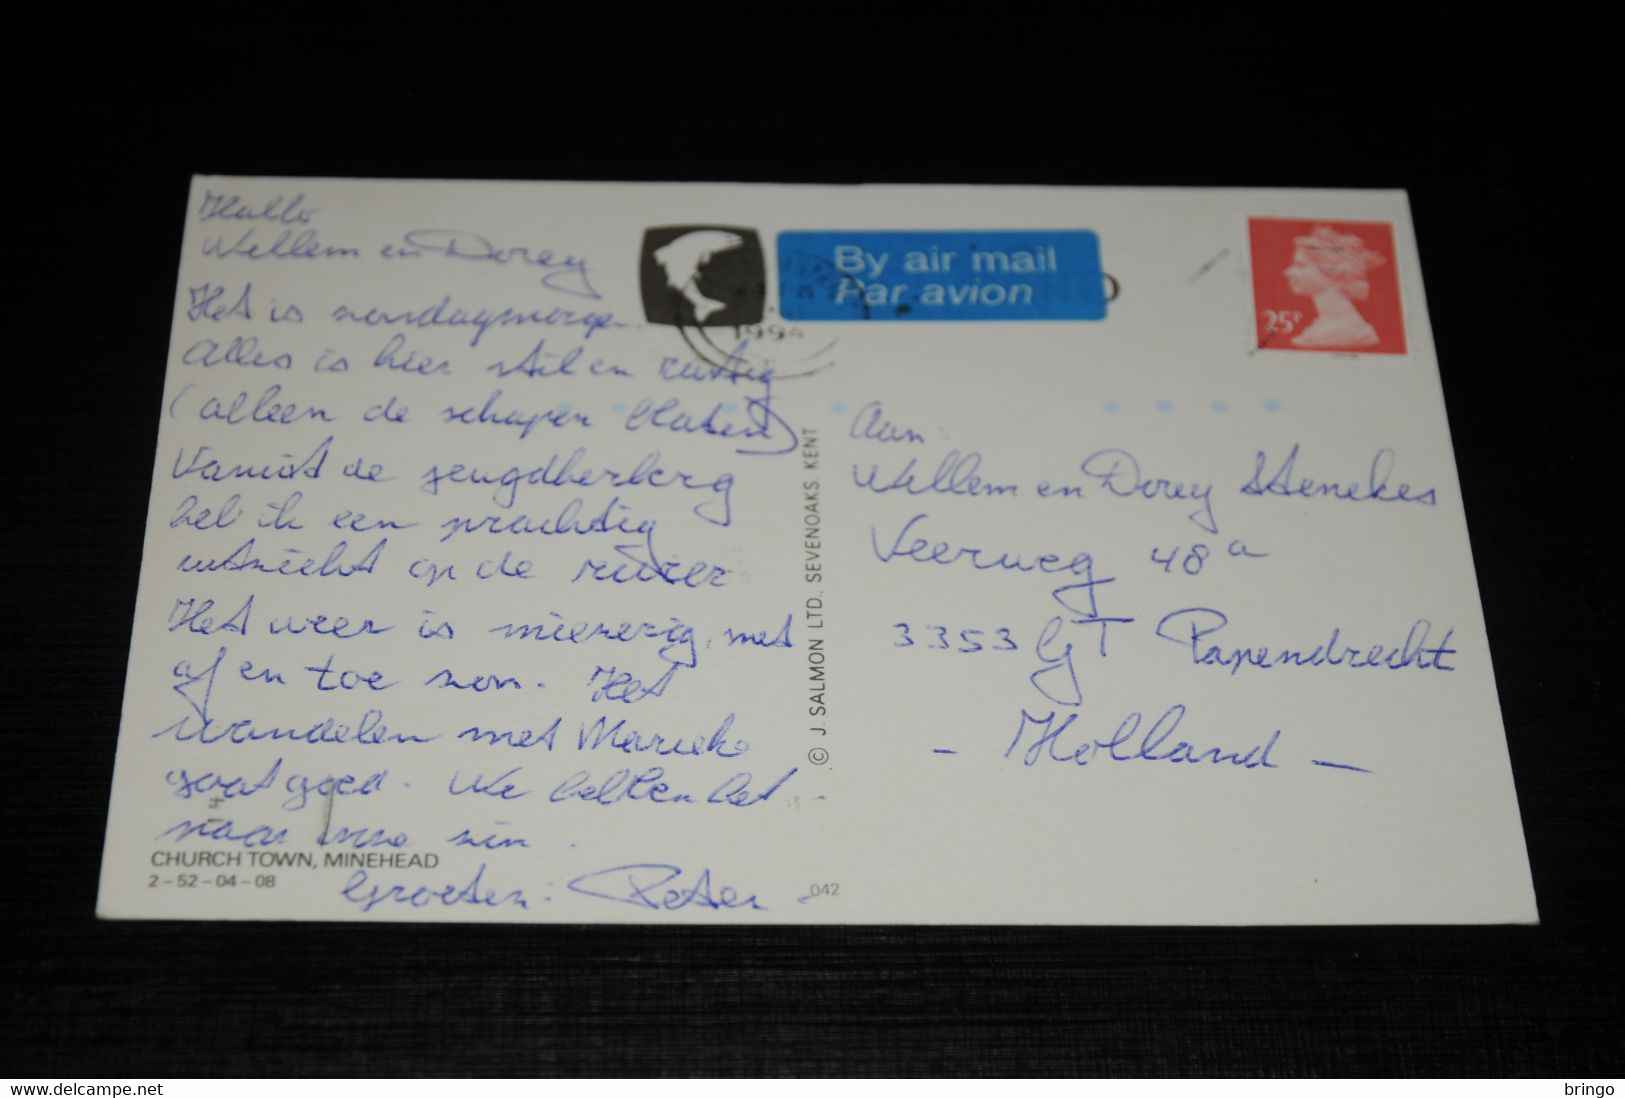 Hallo
Willem en Dorey
Het is zondagmorgen.
Alles is hier stil en rustig
(alleen de schapen blaten)
Vanuit de jeugdherberg
heb ik een prachtig
uitzicht op de rivier
Het weer is miezerig, met
af en toe zon. Het
wandelen met Marieke
gaat goed. We hebben het
naar onze zin.
Groeten: Peter
CHURCH TOWN, MINEHEAD
2-52-04-08
042
© J. SALMON LTD., SEVENOAKS, KENT
1994
By air mail
Par avion
25P
Aan:
Willem en Dorey Stenekes
Veerweg 48a
3353 GT Papendrecht
- Holland -
www.delcampe.net
bringo